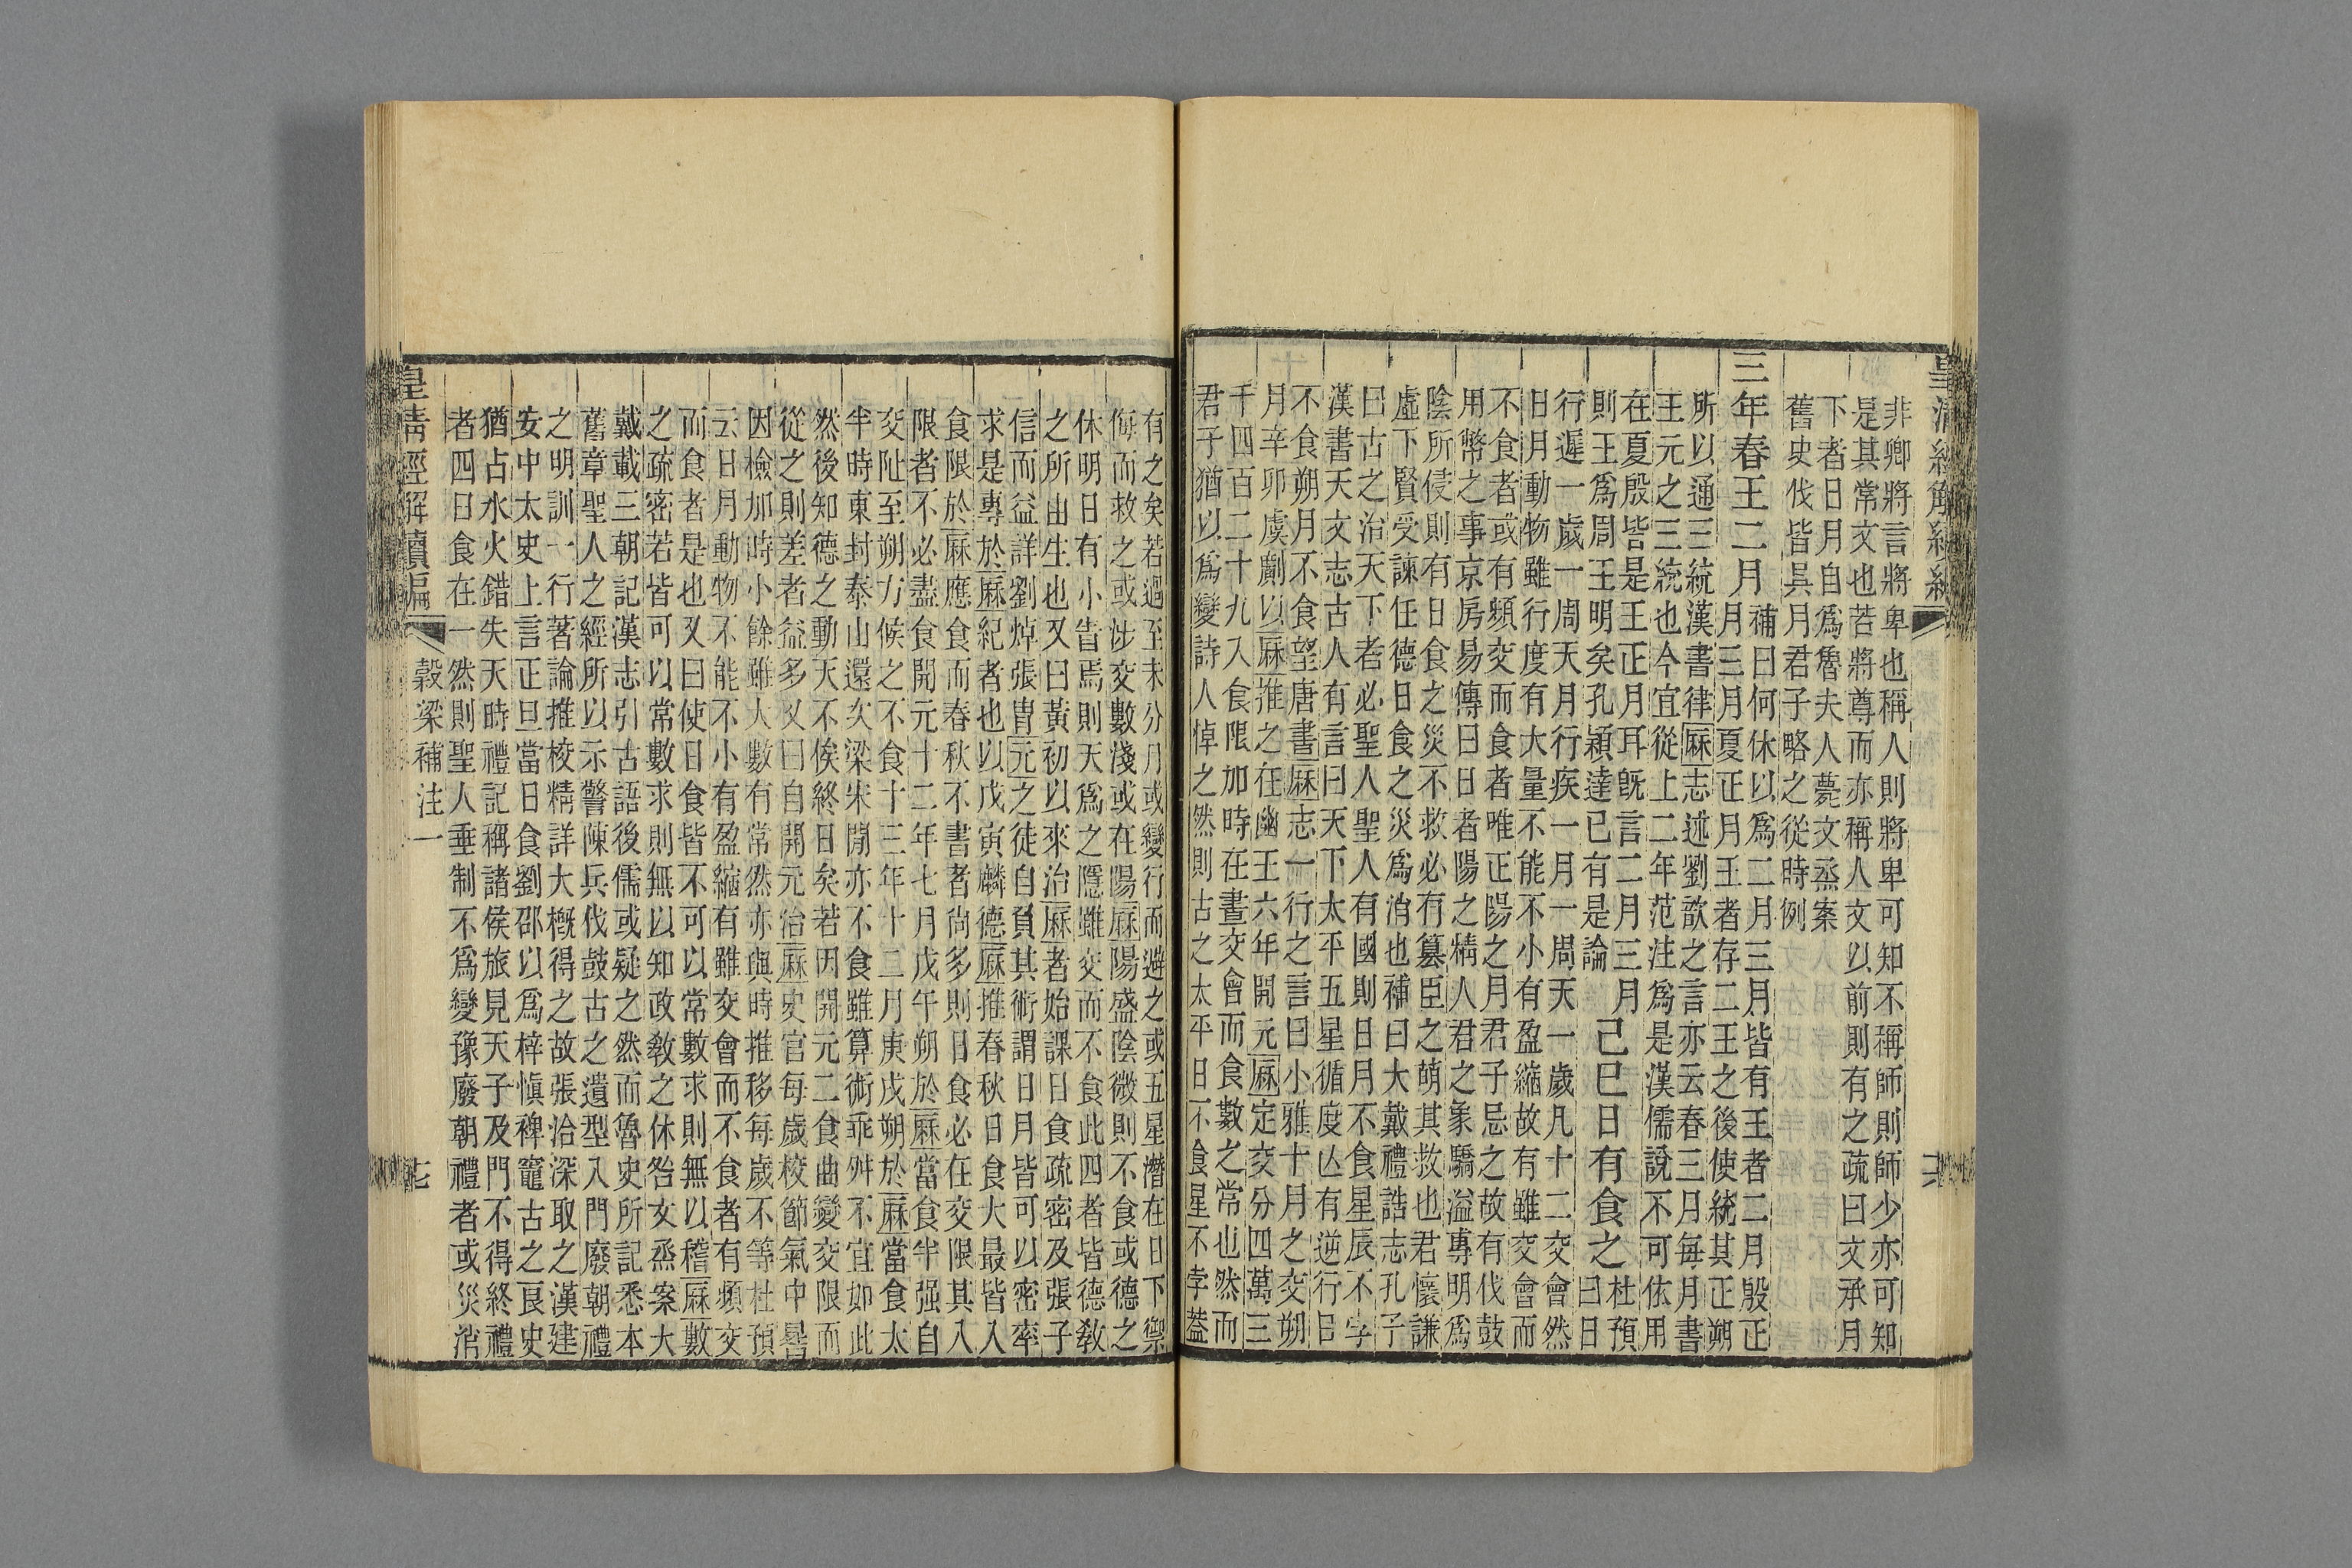 皇清經解續編
非卿將言將卑也稱人則將卑可知不稱師則師少亦可知
是其常文也若將尊而亦稱人文以前則有之疏曰文承月
下者日月自爲魯夫人薨文烝案
舊史伐皆具月君子略之從時例
三年春王二月
補曰何休以爲二月三月皆有王者二月殷正
月三月夏正月王者存二王之後使統其正朔
所以通三統漢書律厤志述劉歆之言亦云春三月每月書
王元之三統也今宜從上二年范注爲是漢儒說不可依用
在夏殷皆是王正月耳旣言二月三月
則王爲周王明矣孔穎達已有是論
己巳日有食之
杜預
曰日
行遲一歲一周天月行疾一月一周天一歲凡十二交會然
日月動物雖行度有大量不能不小有盈縮故有雖交會而
不食者或有頻交而食者唯正陽之月君子忌之故有伐鼓
用幣之事京房易傳曰日者陽之精人君之象驕溢專明爲
陰所侵則有日食之災不救必有篡臣之萌其救也君懷謙
虛下賢受諫任德日食之災爲消也補曰大戴禮誥志孔子
曰古之治天下者必聖人聖人有國則日月不食星辰不孛
漢書天文志古人有言曰天下太平五星循度亾有逆行日
不食朔月不食望唐書厤志一行之言曰小雅十月之交朔
月辛卯虞𠠎以厤推之在幽王六年開元厤定交分四萬三
千四百二十九入食限加時在晝交會而食數之常也然而
君子猶以爲變詩人悼之然則古之太平日不食星不孛葢
有之矣若過至未分月或變行而避之或五星潛在日下禦
侮而救之或涉交數淺或在陽厤陽盛陰微則不食或德之
休明日有小眚焉則天爲之隱雖交而不食此四者皆德教
之所由生也又曰黃初以來治厤者始課日食疏密及張子
信而益詳劉焯張胄元之徒自負其術謂日月皆可以密率
求是專於厤紀者也以戊寅麟德厤推春秋日食大最皆入
食限於厤應食而春秋不書者尚多則日食必在交限其入
限者不必盡食開元十二年七月戊午朔於厤當食半强自
交阯至朔方候之不食十三年十二月庚戌朔於厤當食太
半時東封泰山還次梁宋閒亦不食雖算術乖舛不宜如此
然後知德之動天不俟終日矣若因開元二食曲變交限而
從之則差者益多又曰自開元治厤史官每歲校節氣中晷
因檢加時小餘雖大數有常然亦與時推移每歲不等杜預
云日月動物不能不小有盈縮有雖交會而不食者有頻交
而食者是也又曰使日食皆不可以常數求則無以稽厤數
之疏密若皆可以常數求則無以知政教之休咎文烝案大
戴載三朝記漢志引古語後儒或疑之然而魯史所記悉本
舊章聖人之經所以示警陳兵伐鼓古之遺型入門廢朝禮
之明訓一行著論推校精詳大槪得之故張洽深取之漢建
安中太史上言正旦當日食劉邵以爲梓愼裨竈古之良史
猶占水火錯失天時禮記稱諸侯旅見天子及門不得終禮
者四日食在一然則聖人垂制不爲變豫廢朝禮者或災消
皇清經解續編
穀梁補注一
七